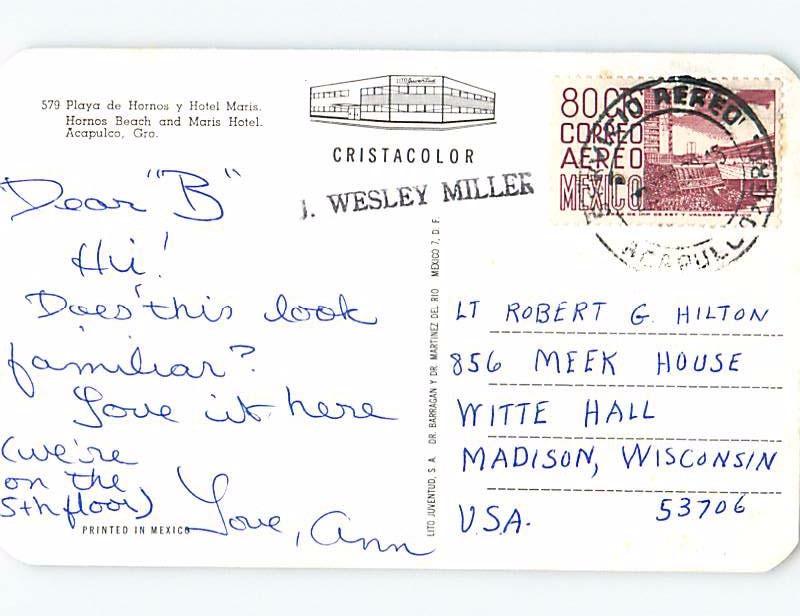 579 Playa de Hornos y Hotel Maris.
Hornos Beach and Maris Hotel.
Acapulco, Gro.
LITO Juventud
CRISTACOLOR
J. WESLEY MILLER
80 CTS
CORREO
AEREO
MEXICO
SERVICIO AEREO
ACAPULCO
Dear "B"
Hi!
Does this look
familiar?
Love it here
(we're
on the
5th floor)
Love, Ann
PRINTED IN MEXICO
LITO JUVENTUD, S A DR. BARRAGAN Y DR. MARTINEZ DEL RIO MEXICO 7, D. F.
LT ROBERT G. HILTON
856 MEEK HOUSE
WITTE HALL
MADISON, WISCONSIN
U.S.A. 53706